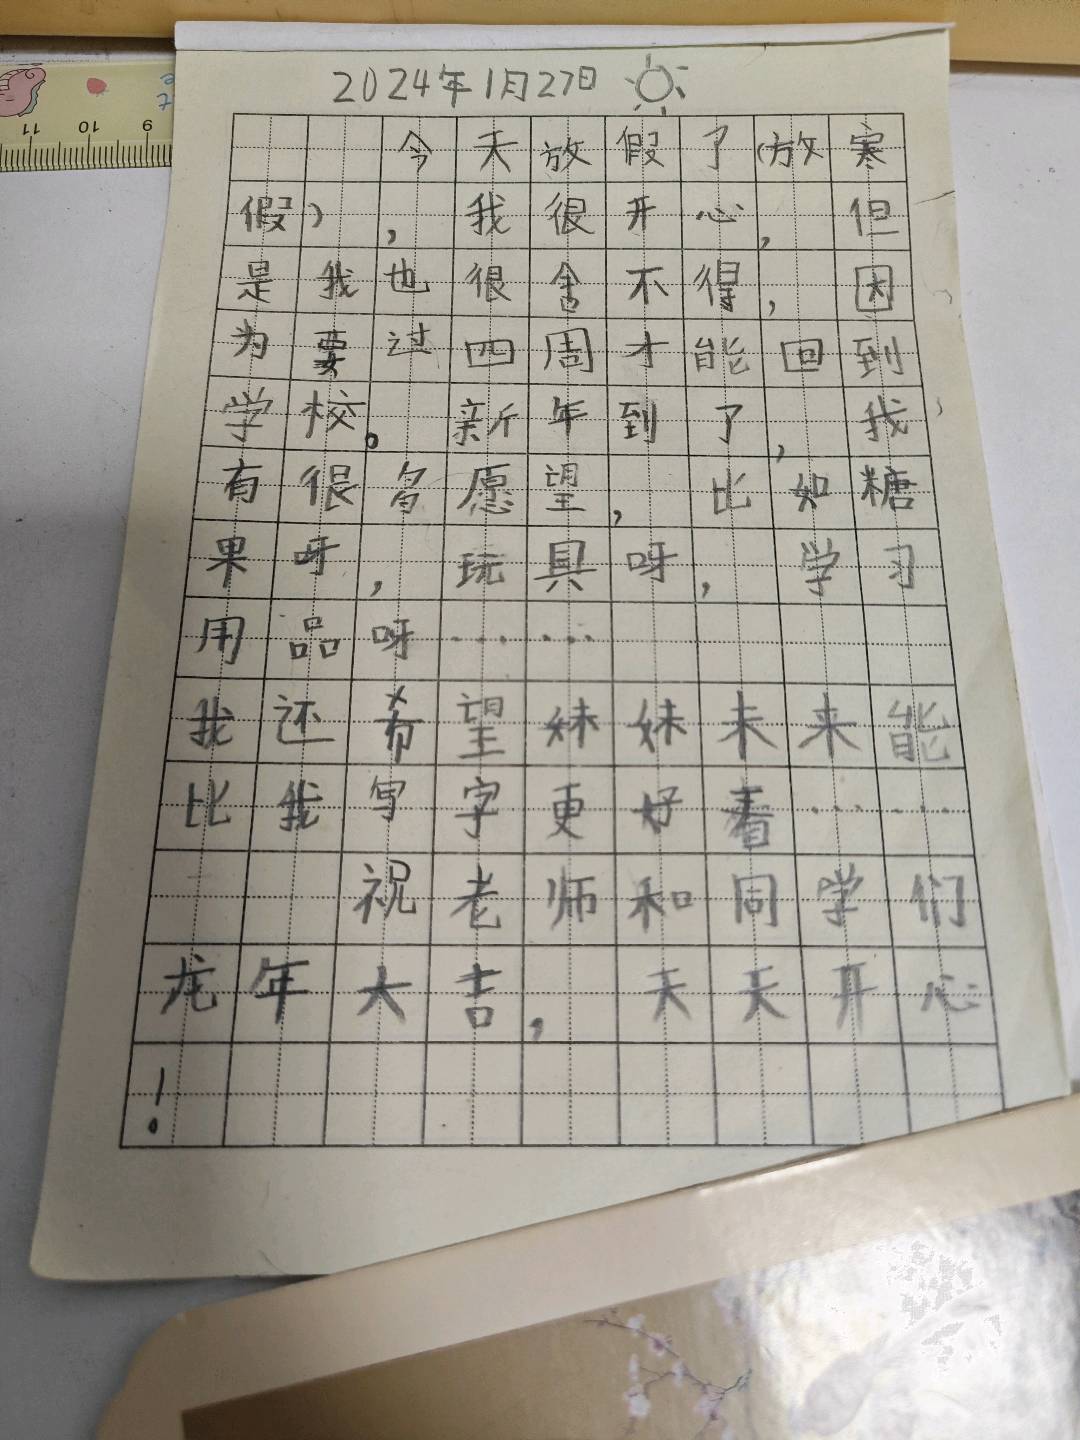 2024年1月27日
今天放假了(放寒
假),我很开心,但
是我也很舍不得,因
为要过四周才能回到
学校。新年到了,我
有很多愿望,比如糖
果呀,玩具呀,学习
用品呀……
我还希望妹妹未来能
比我写字更好看……
祝老师和同学们
龙年大吉,天天开心
!
11 10 9